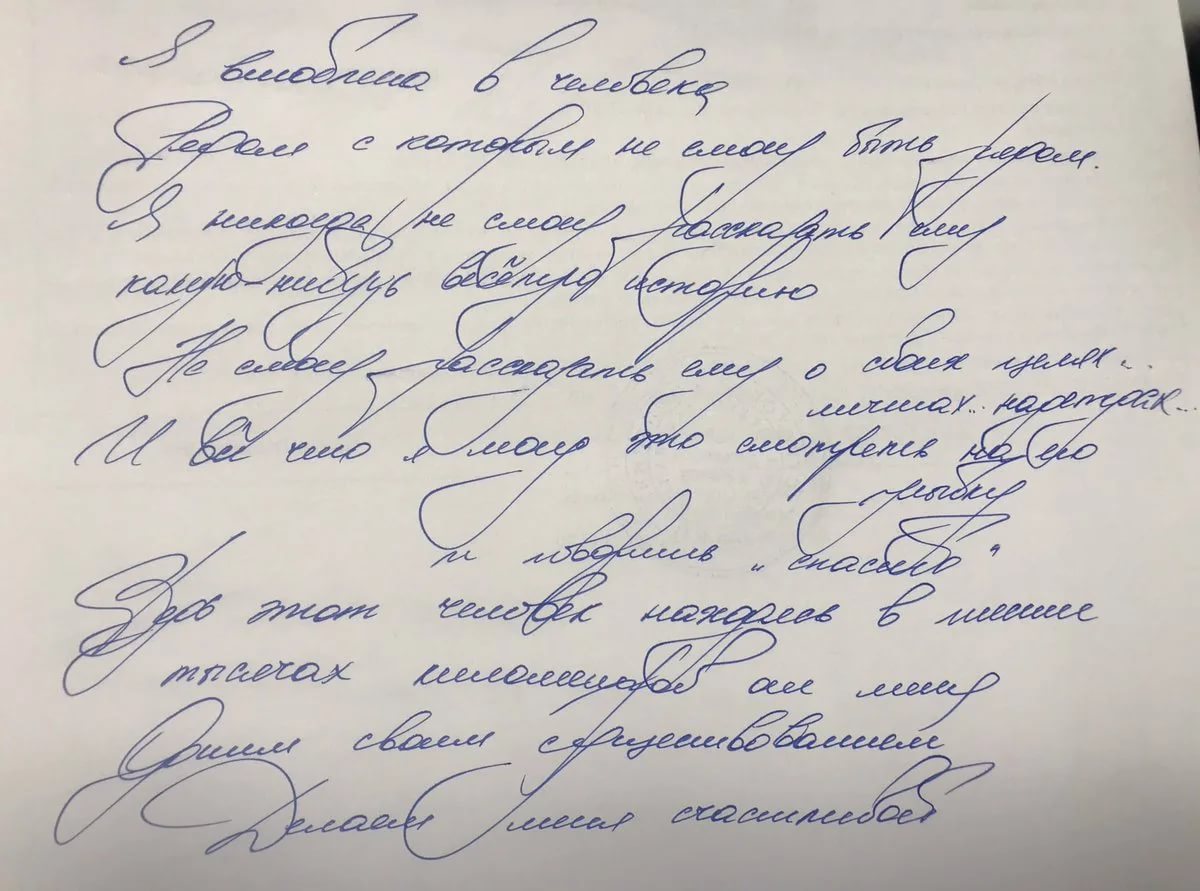 Я влюблена в человека
Рядом с которым не смогу быть рядом.
Я никогда не смогу рассказать ему
какую-нибудь весёлую историю
Не смогу рассказать ему о своих целях..
мечтах.. надеждах..
И всё что я могу это смотреть на его
улыбку
и говорить „спасибо"
Ведь этот человек находясь в
тысячах километров от меня
Одним своим существованием
Делает меня счастливой